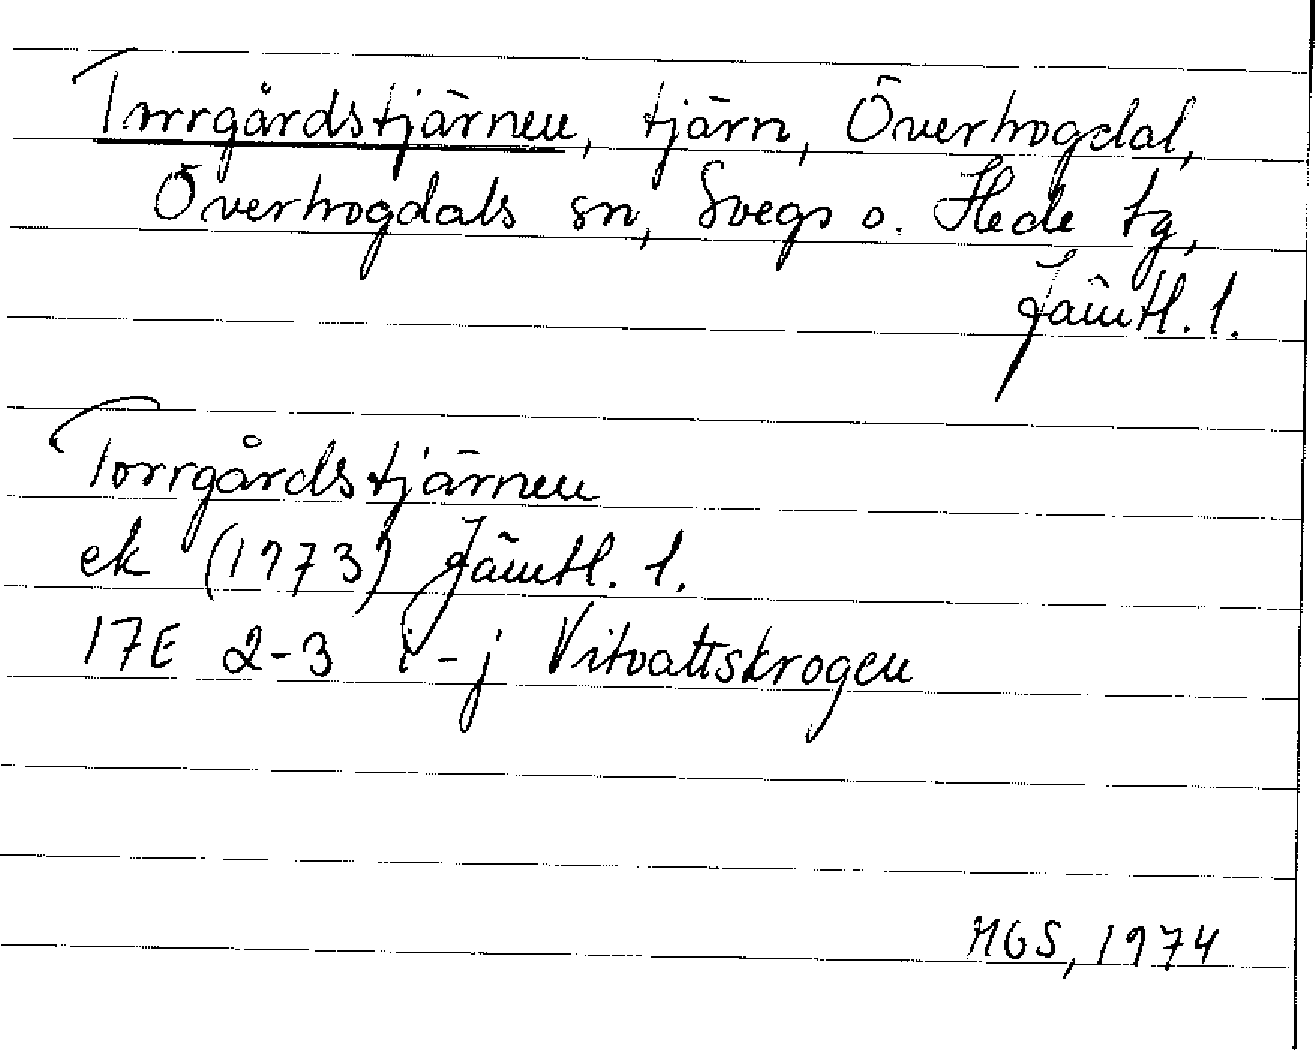 Torrgårdstjärnen, tjärn, Överhogdal,
Överhogdals sn, Svegs o. Hede tg,
Jämtl. l.
Torrgårdstjärnen
ek (1973) Jämtl. l.
17E 2-3 i-j Vitvattskrogen
MGS, 1974